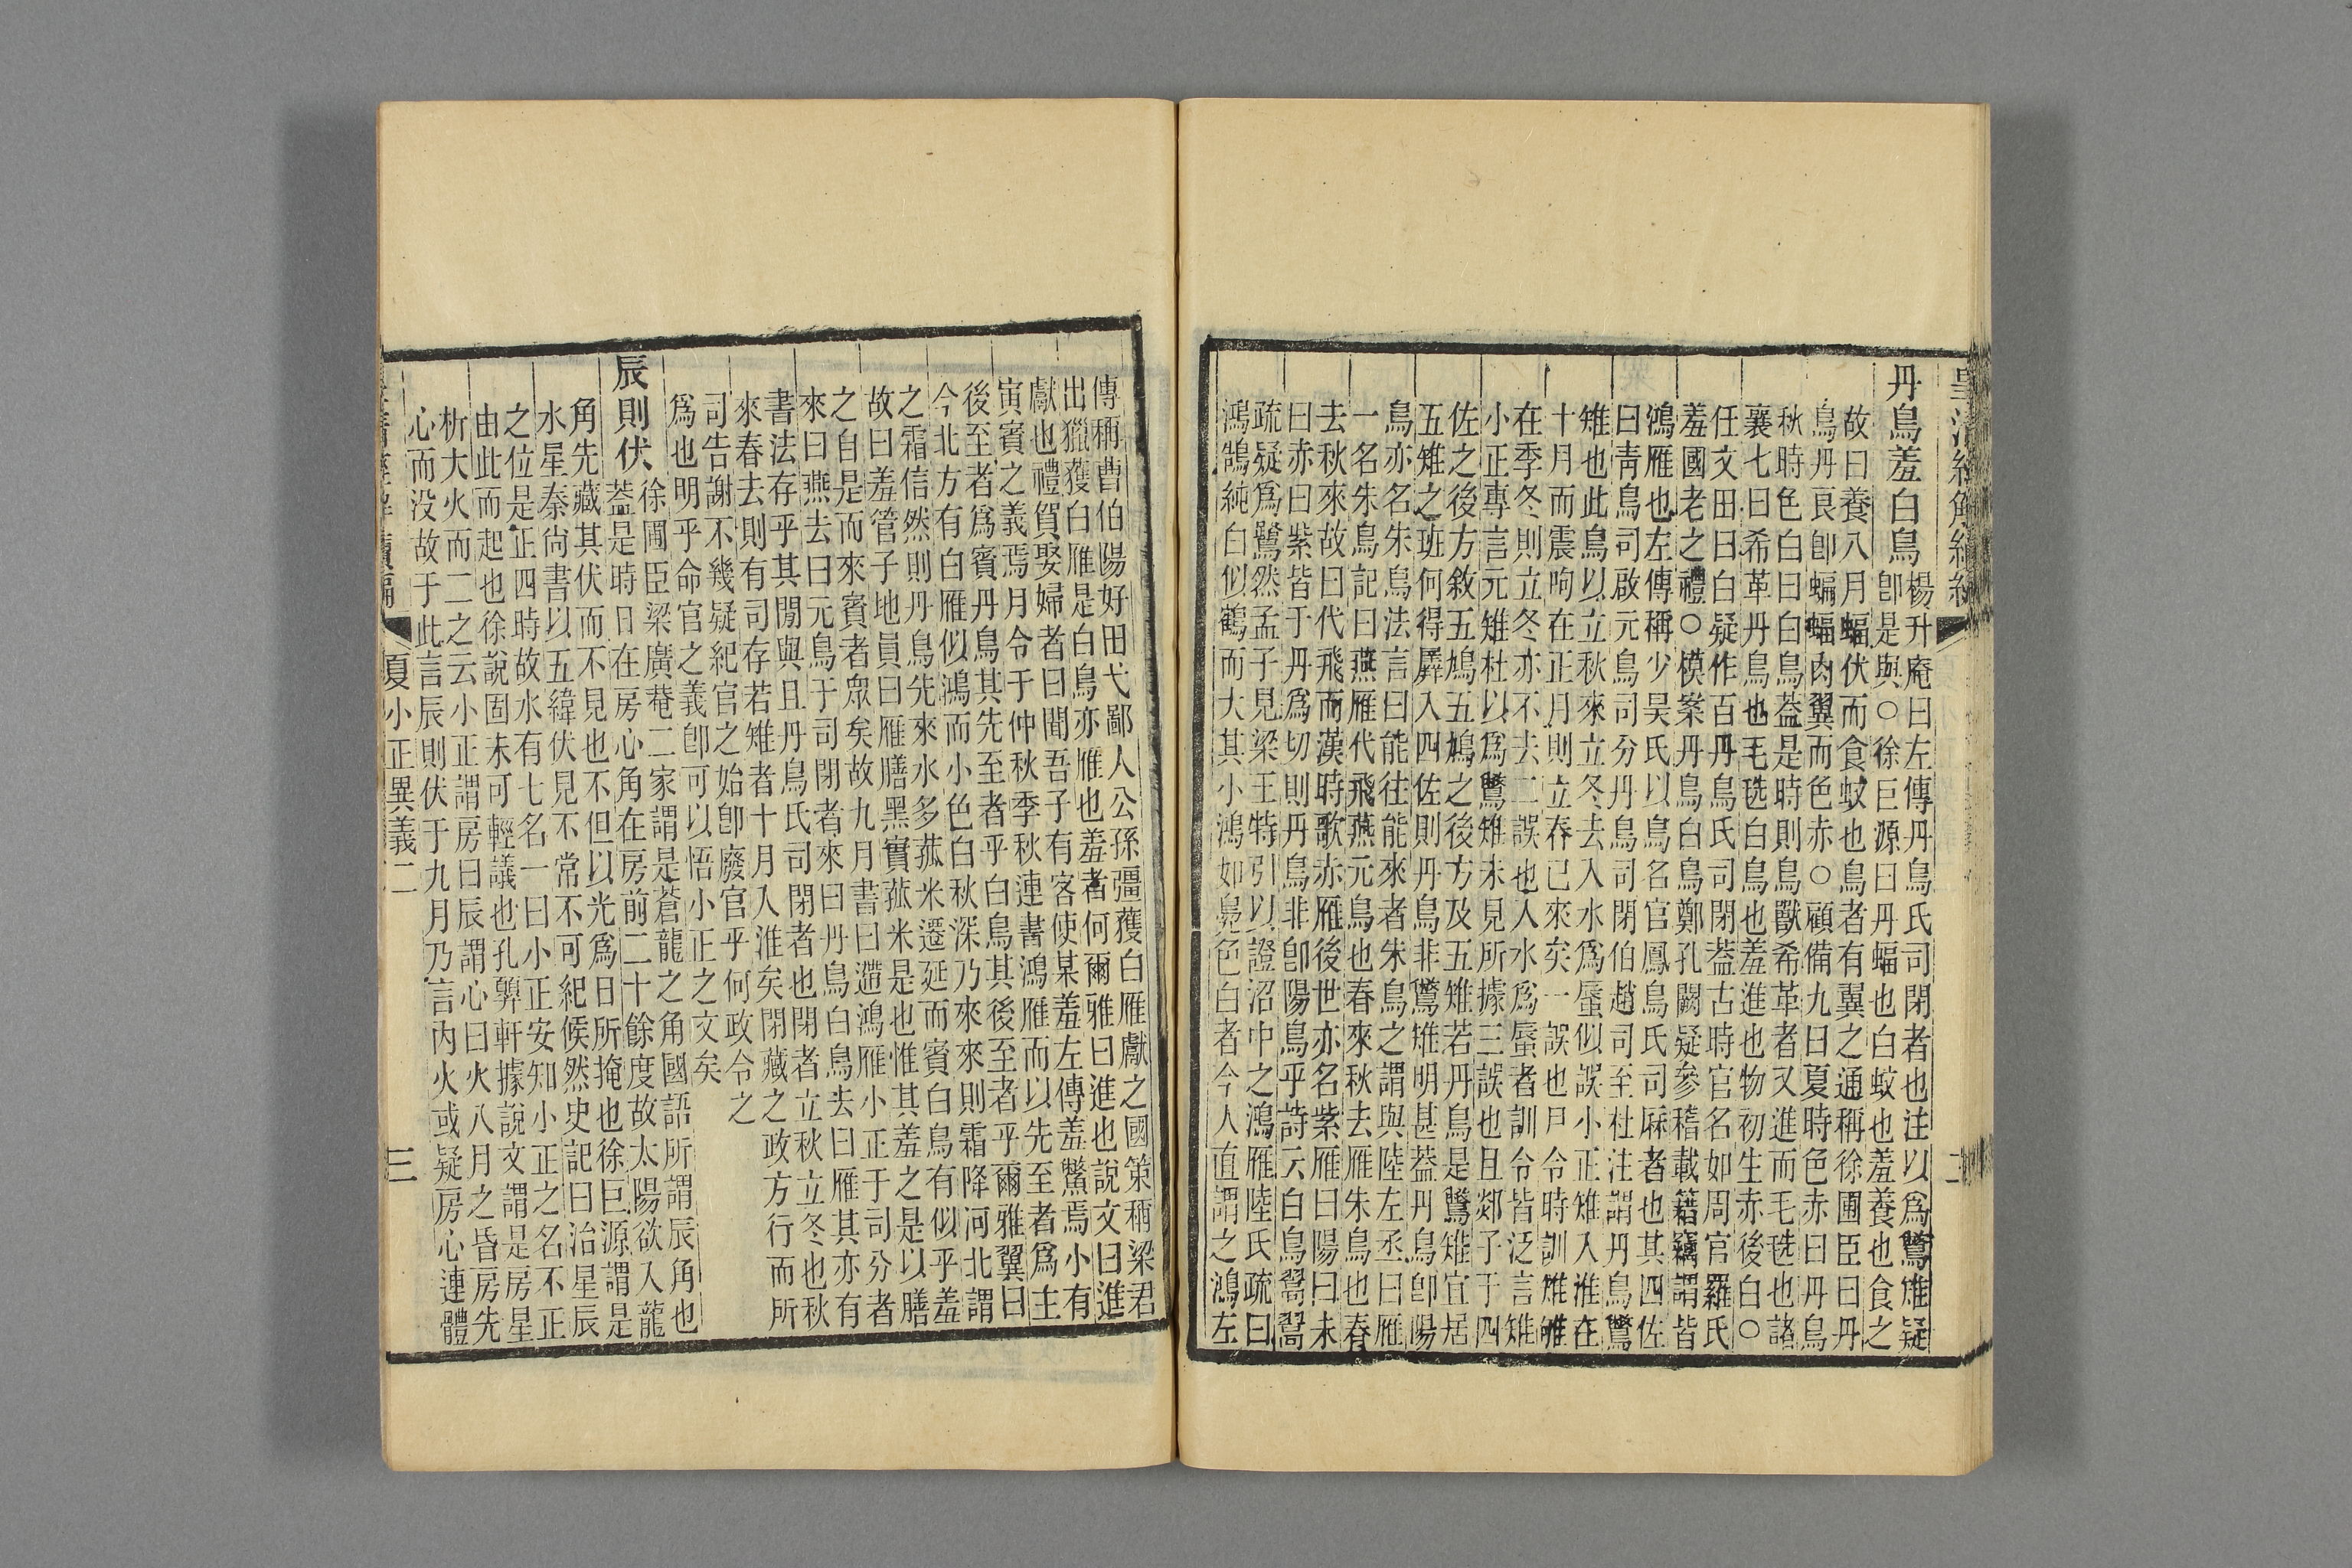 皇清經解續編
二
丹鳥羞白鳥
楊升庵曰左傳丹鳥氏司閉者也注以爲鷩雉疑
卽是與○徐巨源曰丹蝠也白蚊也羞養也食之
故曰養八月蝠伏而食蚊也鳥者有翼之通稱徐圃臣曰丹
鳥丹良卽蝙蝠肉翼而色赤○顧備九曰夏時色赤曰丹鳥
秋時色白曰白鳥葢是時則鳥獸希革者又進而毛毨也諸
襄七曰希革丹鳥也毛毨白鳥也羞進也物初生赤後白○
任文田曰白疑作百丹鳥氏司閉葢古時官名如周官羅氏
羞國老之禮○模案丹鳥白鳥鄭孔闕疑參稽載籍竊謂皆
鴻雁也左傳稱少昊氏以鳥名官鳳鳥氏司厤者也其四佐
曰靑鳥司啟元鳥司分丹鳥司閉伯趙司至杜注謂丹鳥鷩
雉也此鳥以立秋來立冬去入水爲蜃似誤小正雉入淮在
十月而震呴在正月則立春已來矣一誤也尸令時訓雉雊
在季冬則立冬亦不去二誤也入水爲蜃者訓令皆泛言雉
小正專言元雉杜以爲鷩雉未見所據三誤也且郯子于四
佐之後方敘五鳩五鳩之後方及五雉若丹鳥是鷩雉宜居
五雉之班何得羼入四佐則丹鳥非鷩雉明甚葢丹鳥卽陽
鳥亦名朱鳥法言曰能往能來者朱鳥之謂與陸左丞曰雁
一名朱鳥記曰燕雁代飛燕元鳥也春來秋去雁朱鳥也春
去秋來故曰代飛而漢時歌赤雁後世亦名紫雁曰陽曰朱
曰赤曰紫皆于丹爲切則丹鳥非卽陽鳥乎詩云白鳥翯翯
疏疑爲鷺然孟子見梁王特引以證沼中之鴻雁陸氏疏曰
鴻鵠純白似鶴而大其小鴻如鳧色白者今人直謂之鴻左
傳稱曹伯陽好田弋鄙人公孫彊獲白雁獻之國策稱梁君
出獵獲白雁是白鳥亦雁也羞者何爾雅曰進也說文曰進
獻也禮賀娶婦者曰聞吾子有客使某羞左傳羞鱉焉小有
寅賓之義焉月令于仲秋季秋連書鴻雁而以先至者爲主
後至者爲賓丹鳥其先至者乎白鳥其後至者乎爾雅翼曰
今北方有白雁似鴻而小色白秋深乃來來則霜降河北謂
之霜信然則丹鳥先來水多菰米遷延而賓白鳥有似乎羞
故曰羞管子地員曰雁膳黑實菰米是也惟其羞之是以膳
之自是而來賓者眾矣故九月書曰遰鴻雁小正于司分者
來曰燕去曰元鳥于司閉者來曰丹鳥白鳥去曰雁其亦有
書法存乎其閒與且丹鳥氏司閉者也閉者立秋立冬也秋
來春去則有司存若雉者十月入淮矣閉藏之政方行而所
司告謝不幾疑紀官之始卽廢官乎何政令之
爲也明乎命官之義卽可以悟小正之文矣
辰則伏
徐圃臣梁廣菴二家謂是蒼龍之角國語所謂辰角也
葢是時日在房心角在房前二十餘度故太陽欲入龍
角先藏其伏而不見也不但以光爲日所掩也徐巨源謂是
水星泰尙書以五緯伏見不常不可紀候然史記曰治星辰
之位是正四時故水有七名一曰小正安知小正之名不正
由此而起也徐說固未可輕議也孔顨軒據說文謂是房星
析大火而二之云小正謂房曰辰謂心曰火八月之昏房先
心而没故于此言辰則伏于九月乃言内火或疑房心連體
皇清經解續編
夏小正異義二
三